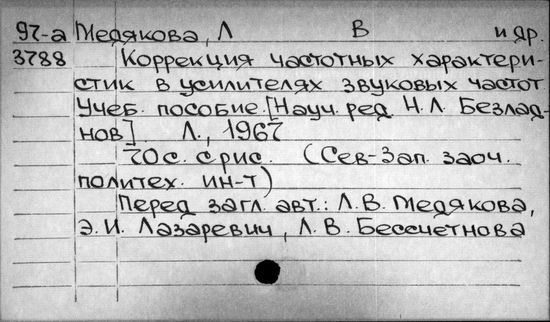 97-а Медякова, Л В и др.
3788 Коррекция частотных характери-
стик в усилителях звуковых частот.
Учеб. пособие. [Науч. ред. Н. Л. Безлад-
нов] Л., 1967
70 с. с рис. (Сев-Зап. заоч.
политех. ин-т)
Перед загл. авт.: Л. В. Медякова,
Э. И. Лазаревич, Л. В. Бессчетнова